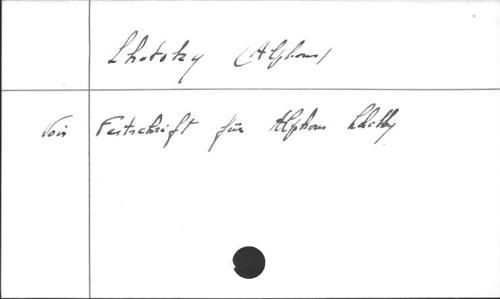 Lhotsky (Alphons)
Voir Festschrift für Alphons Lhotsky